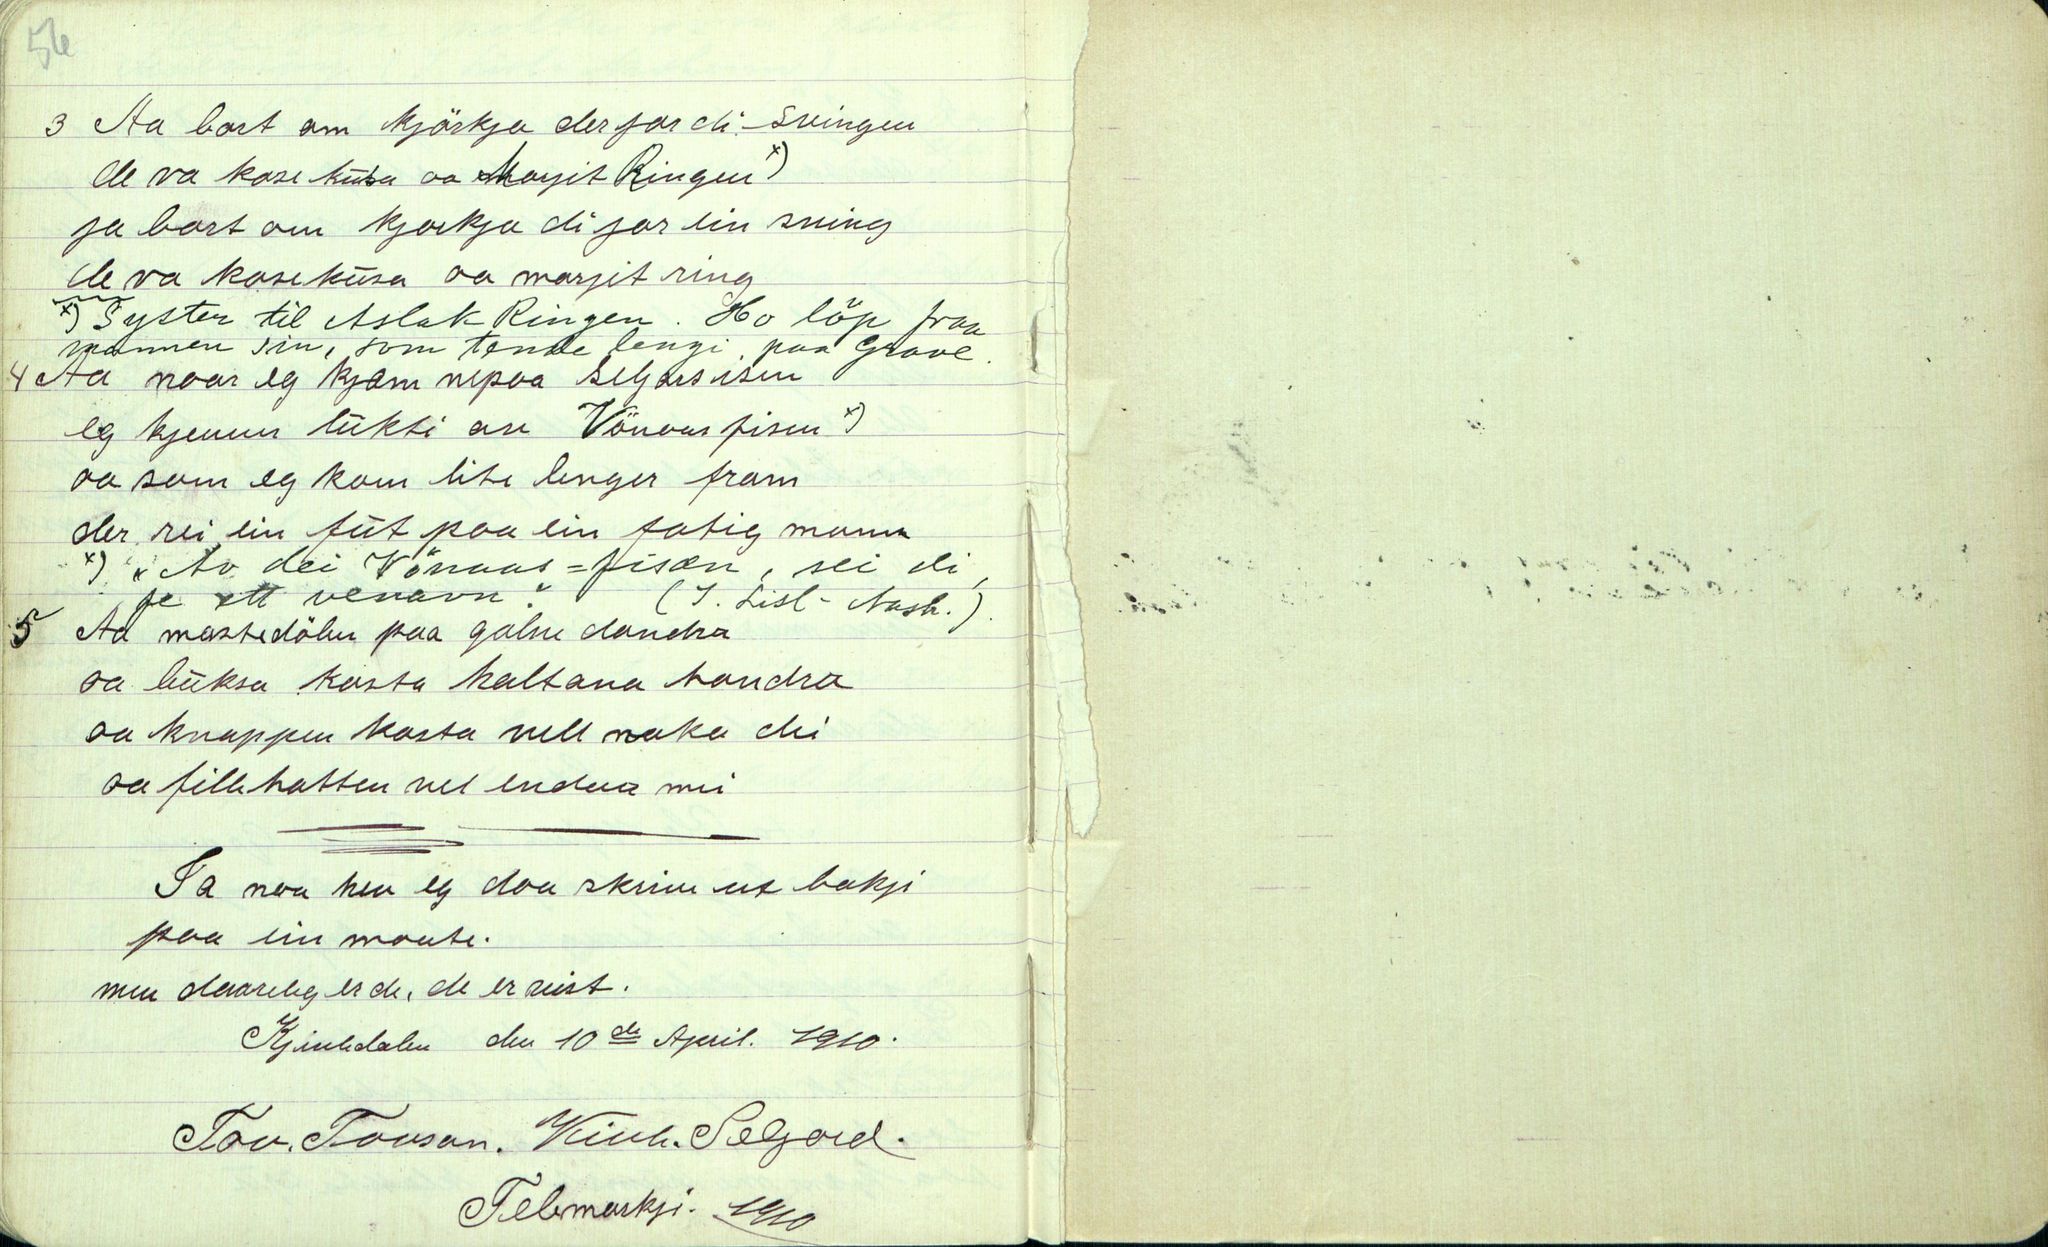 56
3 Aa bort om kjörkja der for di svingen
de va kose kusa oa Marjit Ringen x)
ja bort om kjorkja di for ein sving
de va kosekusa oa marjit ring
x) Syster til Aslak Ringen. Ho löp fraa
mannen sin, som tente lengi paa Grave.
4 Aa naar eg kjæm nepaa Seljorsisen
eg kjenner lukti av Vönaas fisen x)
oa som eg kom lite lenger fram
der rei ein fut paa ein fatig mann
x) "Av dei Vönaas-fisæn, sei di,
fe ett venavn." (T. Lisl-Aash.).
5 Aa mastedölen paa galne dandra
oa buksa kosta haltana handra
oa knappen kosta vell noka di
oa fillehatten vel endaa mei
Ja noa heu eg daa skrive ut bokji
paa ein moate.
men daareleg er de, de er vist.
den 10de April. 1910.
Tov. Tovson. Seljord.
Telemarkji. 1910